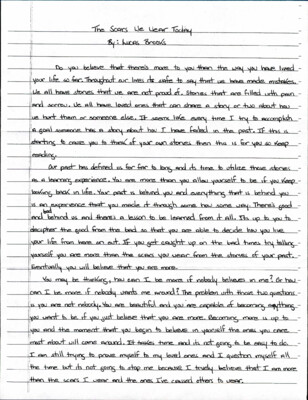 The Scars We Wear Today
By: Lucas Brooks
Do you believe that there's more to you than the way you have lived
your life so far. Throughout our lives its safe to say that we have made mistakes.
We all have stories that we are not proud of. Stories that are filled with pain
and sorrow. We all have loved ones that can share a story or two about how
we hurt them or someone else. It seems like every time I try to accomplish
a goal someone has a story about how I have failed in the past. If this is
starting to cause you to think of your own stories then this is for you so keep
reading.
Our past has defined us for far to long, and its time to utilize those stories
as a learning experience. You are more than you allow yourself to be if you keep
looking back in life. Your past is behind you and everything that is behind you
is an experience that you made it through some how some way. There's good
and bad behind us and there's a lesson to be learned from it all. Its up to you to
decipher the good from the bad so that you are able to decide how you live
your life from here on out. If you get caught up on the bad times try telling
yourself you are more than the scars you wear from the stories of your past.
Eventually you will believe that you are more.
You may be thinking, how can I be more if nobody believes in me? Or how
can I be more if nobody wants me around? The problem with those two questions
is you are not nobody. You are beautiful and you are capable of becoming anything
you want to be if you just believe that you are more. Becoming more is up to
you and the moment that you begin to believe in yourself the ones you care
most about will come around. It takes time and its not going to be easy to do.
I am still trying to prove myself to my loved ones and I question myself all
the time but its not going to stop me because I truely believe that I am more
than the scars I wear and the ones I've caused others to wear.